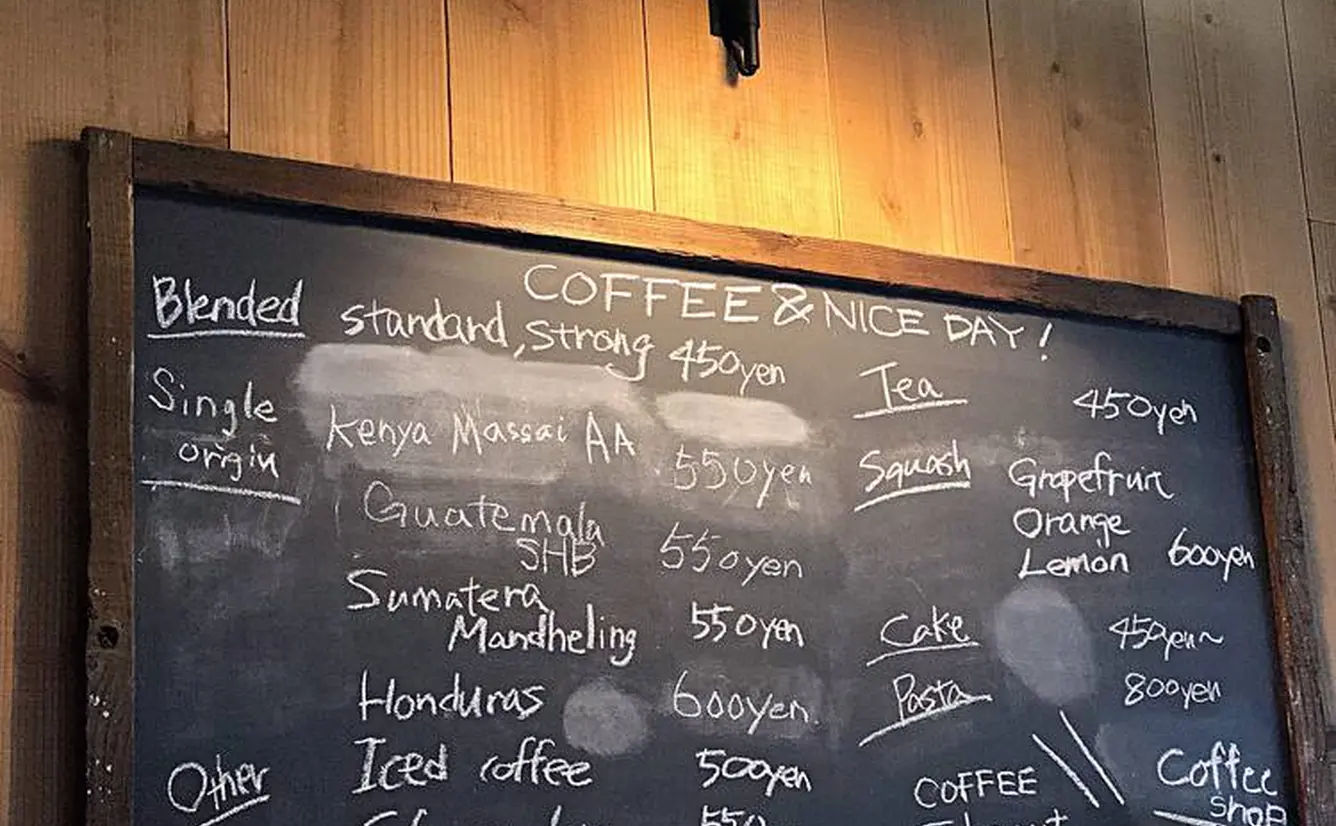 COFFEE & NICE DAY!
Blended standard, strong 450yen
Single origin
Kenya Massai AA 550yen
Guatemala SHB 550yen
Sumatera Mandheling 550yen
Honduras 600yen
Other
Iced coffee 500yen
550
Tea 450yen
Squash Grapefruit
Orange
Lemon 600yen
Cake 450yen~
Pasta 800yen
COFFEE
Coffee
shop